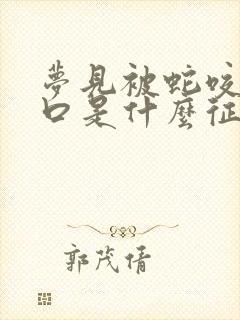 夢見被蛇咬
口是什麼征
郭茂倩